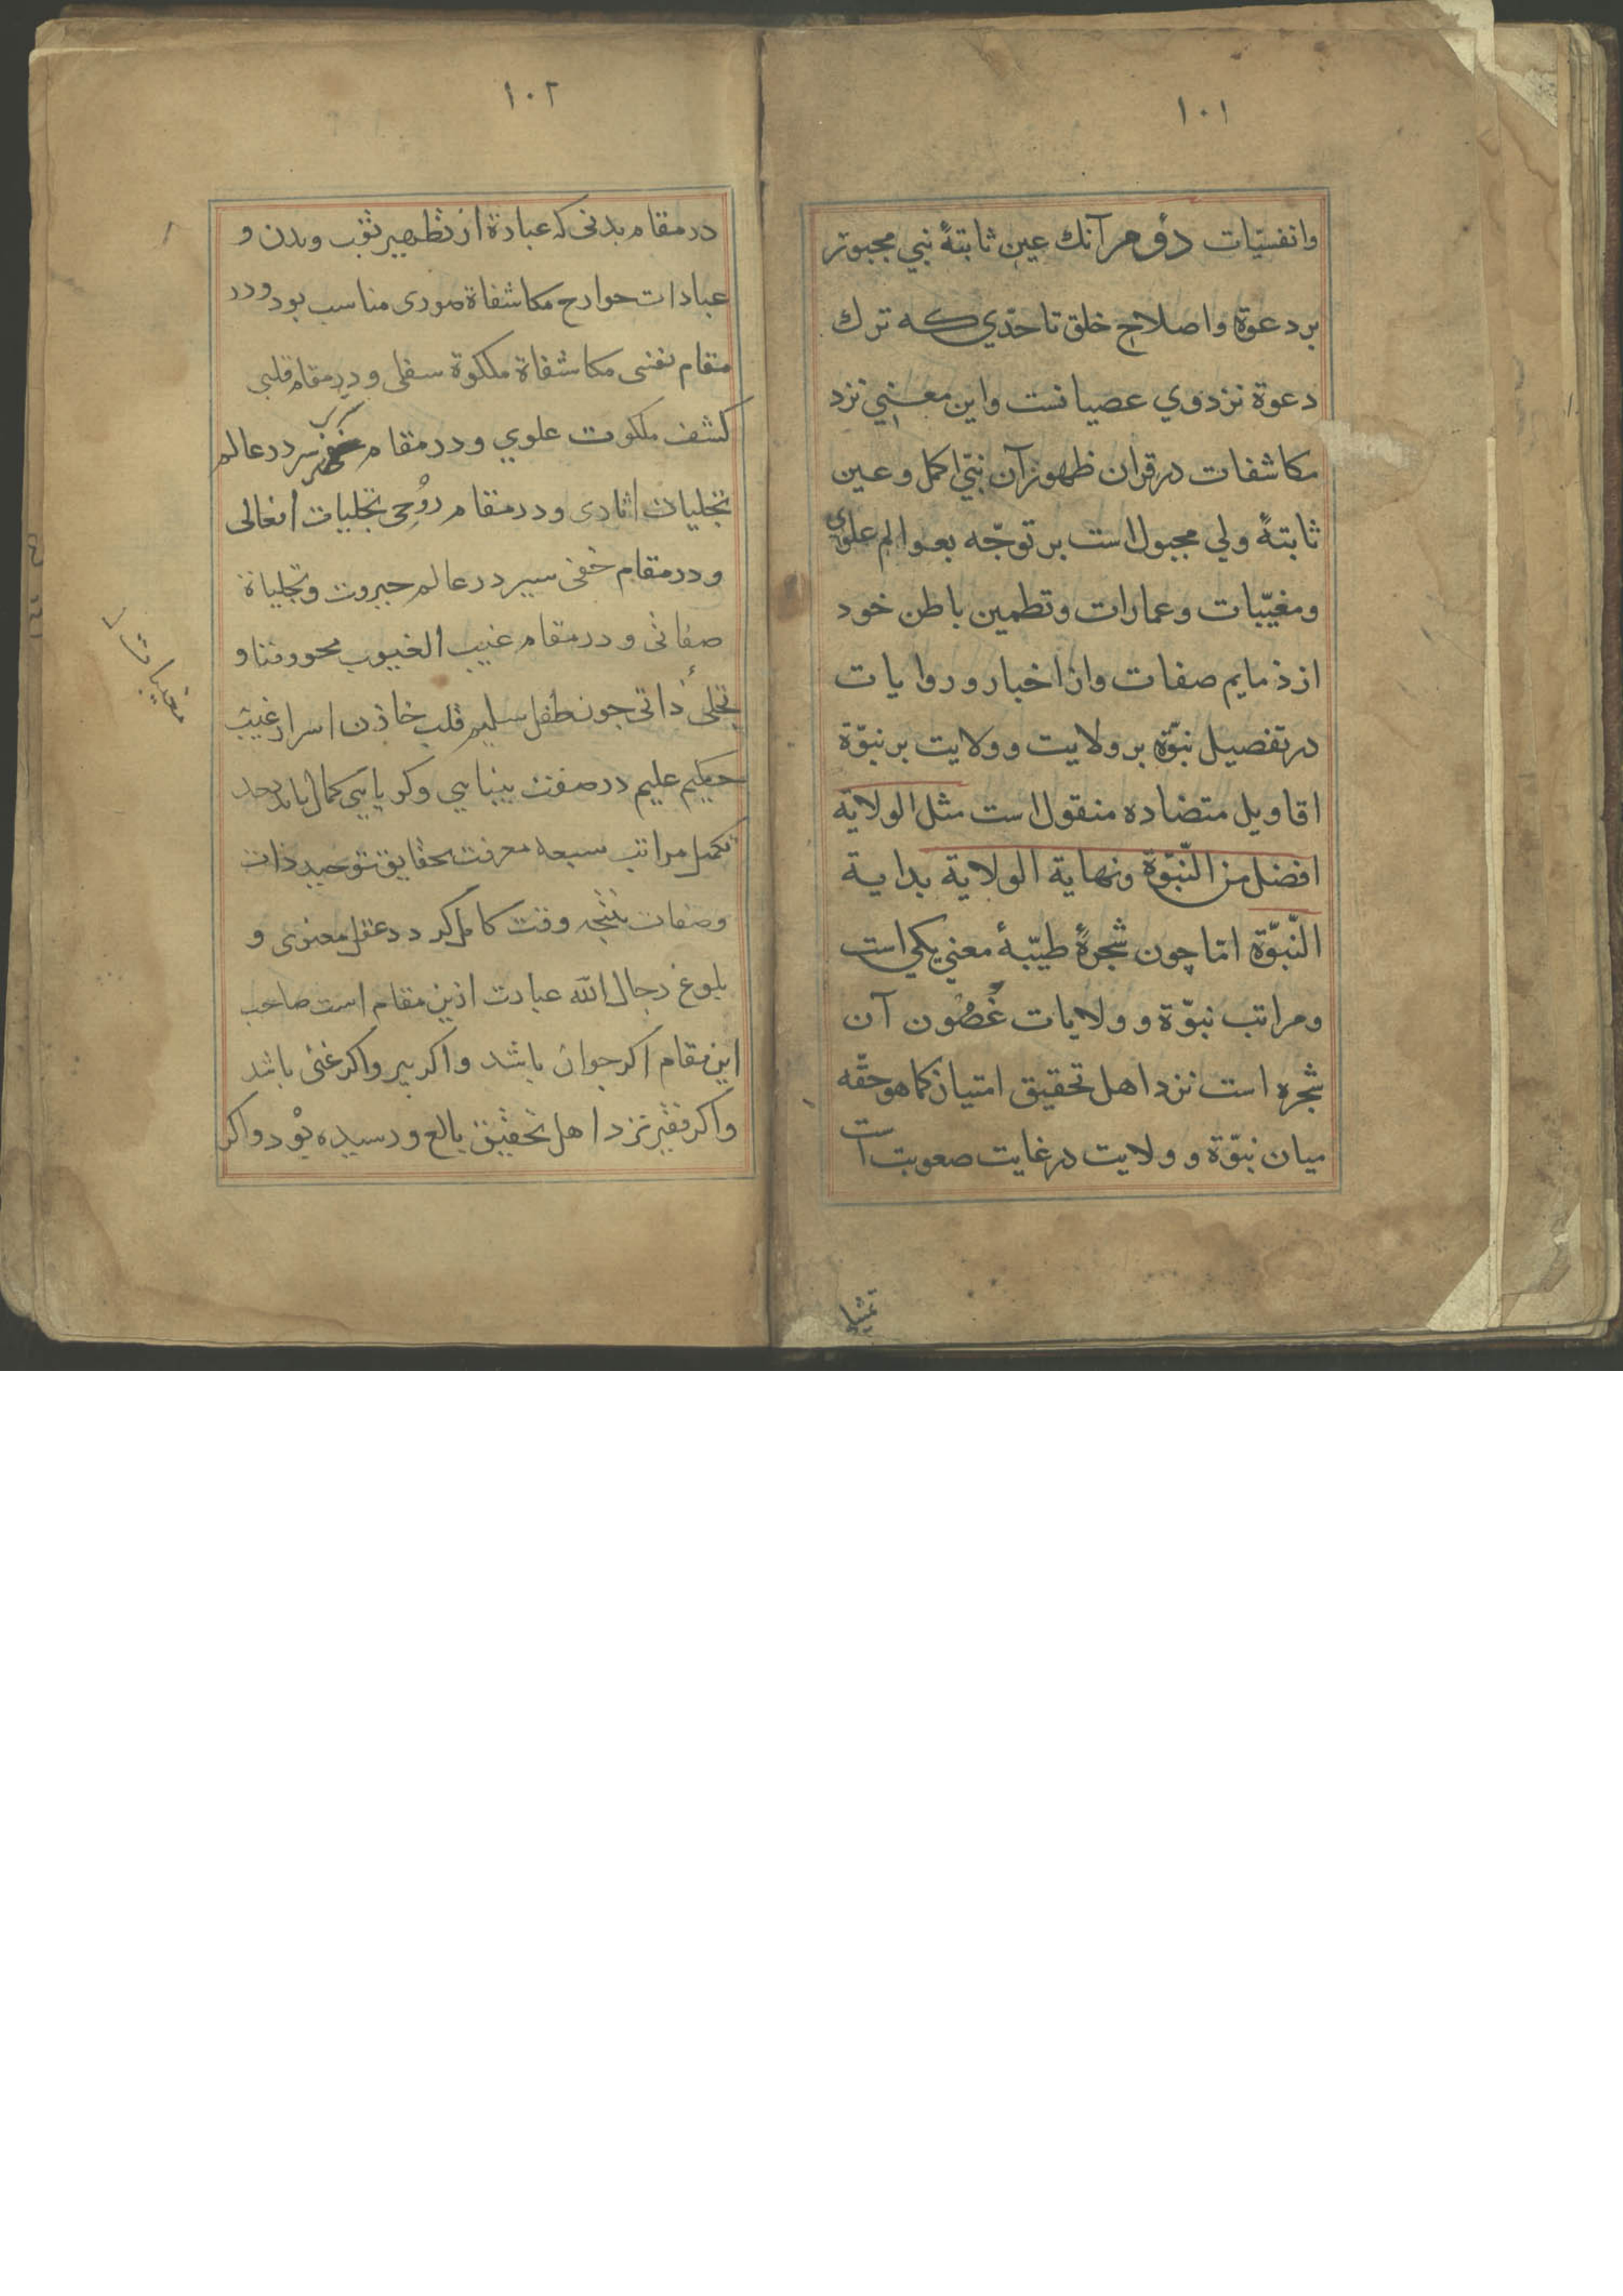 ١٠١
وانفسیّات دوم آنك عین ثابتهٔ نبی مجبور
بر دعوة واصلاح خلق تا حدّی که ترك
دعوة نزد وی عصیانست واین معنی نزد
مکاشفات در قران ظهور آن نبیّ اکمل وعین
ثابتهٔ ولی مجبول است بر توجّه بعوالم علوی
ومغیّبات وعمارات وتطمین باطن خود
از ذمایم صفات واز اخبار وروایات
در تفصیل نبوّة بر ولایت وولایت بر نبوّة
اقاویل متضاده منقول است مثل الولایة
افضل من النّبوّة ونهایة الولایة بدایة
النّبوّة امّا چون شجرهٔ طیّبهٔ معنی یکی است
ومراتب نبوّة وولایات غُصُون آن
شجره است نزد اهل تحقیق امتیاز کما هو حقّه
میان نبوّة وولایت در غایت صعوبت است
١٠٢
در مقام بدنی که عبادة از تطهیر ثوب وبدن و
عبادات جوارح مکاشفاة صوری مناسب بود ودر
مقام نفسی مکاشفاة ملکوة سفلی ودر مقام قلبی
کشف ملکوت علوی ودر مقام سر در عالم
تجلیات اثاری ودر مقام رُوحی تجلیات افعالی
ودر مقام خفی سیر در عالم جبروت وتجلیاة
صفاتی ودر مقام غیب الغیوب محو وفنا و
تجلّی ذاتی چون طفل سلیم قلب خازن اسرار غیب
حکیم علیم در صفت بینایی وکریایی کمال یابد بعد
تکمیل مراتب سبعه معرفت بحقایق توحید ذات
وصفات وقت کامل گردد عقل معنوی و
بلوغ رجال الله عبارت ازین مقام است صاحب
این مقام اکر جوان باشد واکر پیر واکر غنی باشد
واکر فقیر نزد اهل تحقیق بالغ ورسیده بود واکر